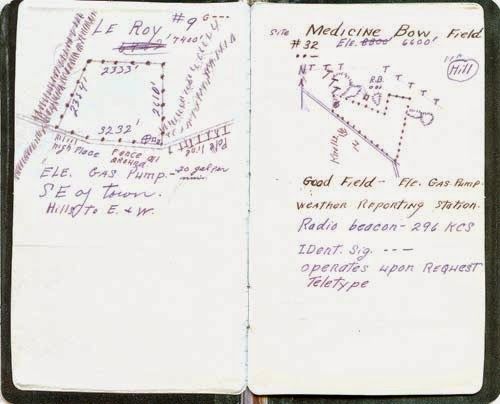 LE Roy #9 G---
7400'
2333'
2334'
2640'
3232'
High Place
Pole line
ELE. GAS PUMP.- 20 gal per min.
SE of Town.
Hills to E. & W.
SITE Medicine Bow Field
#32 Ele. 6600'
Hill
N
R.B.
Good Field - Ele. GAS PUMP-
WEATHER REPORTING STATION.
Radio beacon - 296 KCS
IDent. Sig. ---
operates upon REQUEST
Teletype